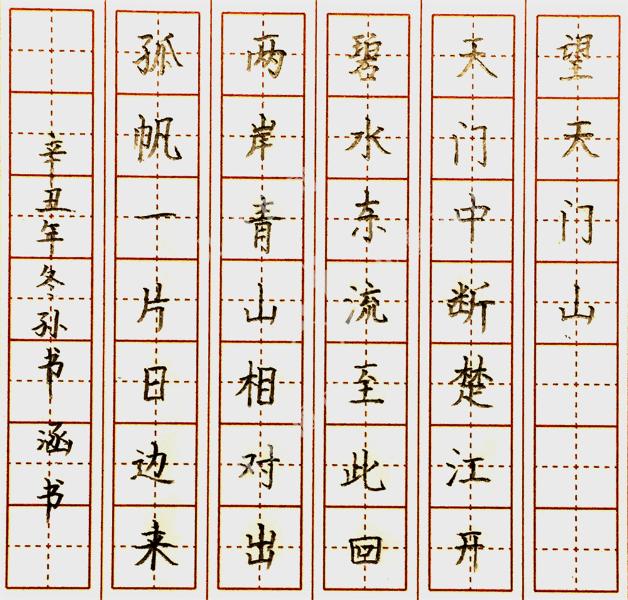 望天门山
天门中断楚江开
碧水东流至此回
两岸青山相对出
孤帆一片日边来
辛丑年冬孙书涵书